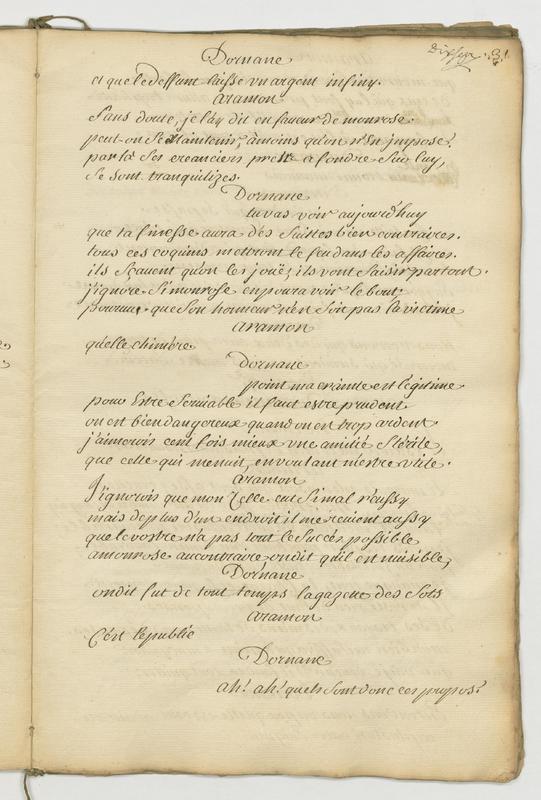 31
Dornane
et que le deffunt laisse un argent infiny.
aramon
sans doute, je l'ay dit en faueur de monrose.
peut-on se Maintenir, amoins qu'on n'en jmpose.
par la ses creanciers prests a fondre sur luy,
se sont tranquilizés.
Dornane
tu vas voir aujourd'huy
que ta finesse aura des suittes bien contraires.
tous ces coquins mettront le feu dans les affaires.
ils sçauent qu'on les jouë, ils vont saisir partout.
j'ignore si monrose en poura voir le bout.
pourvu que son honneur n'en soit pas la victime
aramon
quelle chimbre.
Dornane
point ma crainte est legitime
pour Estre seruiable il faut estre prudent
on est bien dangereux quand on est trop ardent
j'aimerois cent fois mieux une amitié sterile,
que celle qui me nuit, en voulant m'estre vtile.
aramon
J'ignorois que mon Zelle eut si mal reussy
mais de plus d'un endroit il me reuient aussy
que le vostre n'a pas tout le succés possible
a monrose au contraire on dit qu'il est nuisible,
Dornane
on dit fut de tout temps la gazette des Sots
aramon
C'est le public
Dornane
ah! ah! quels sont donc ces propos?